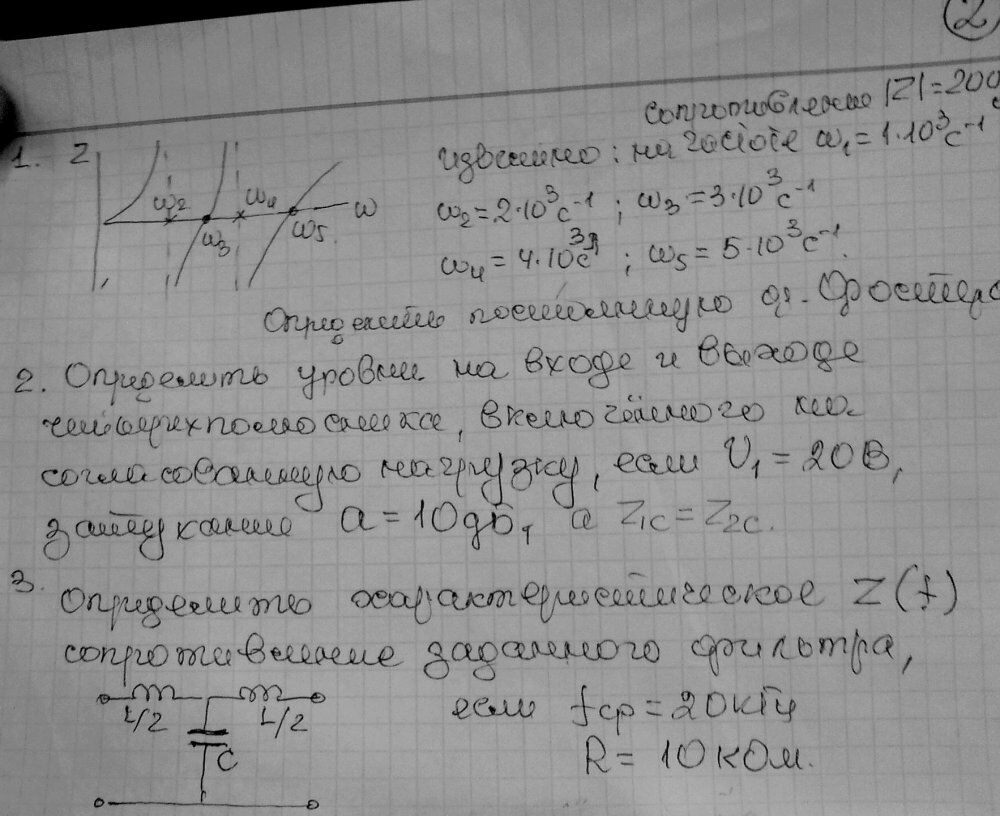 2
сопротивление |Z|=200
1. Z известно: на частоте ω₁=1·10³c⁻¹
ω₂ ω₄ ω ω₂=2·10³c⁻¹; ω₃=3·10³c⁻¹
ω₃ ω₅ ω₄=4·10³c⁻¹; ω₅=5·10³c⁻¹.
Определить постоянную ф. Фостера
2. Определить уровни на входе и выходе
четырехполюсника, включённого на
согласованную нагрузку, если U₁=20В,
затухание a=10дБ, а Z₁c=Z₂c.
3. Определить характеристическое Z(f)
сопротивление заданного фильтра,
L/2 L/2 если fср=20кГц
C R=10кОм.